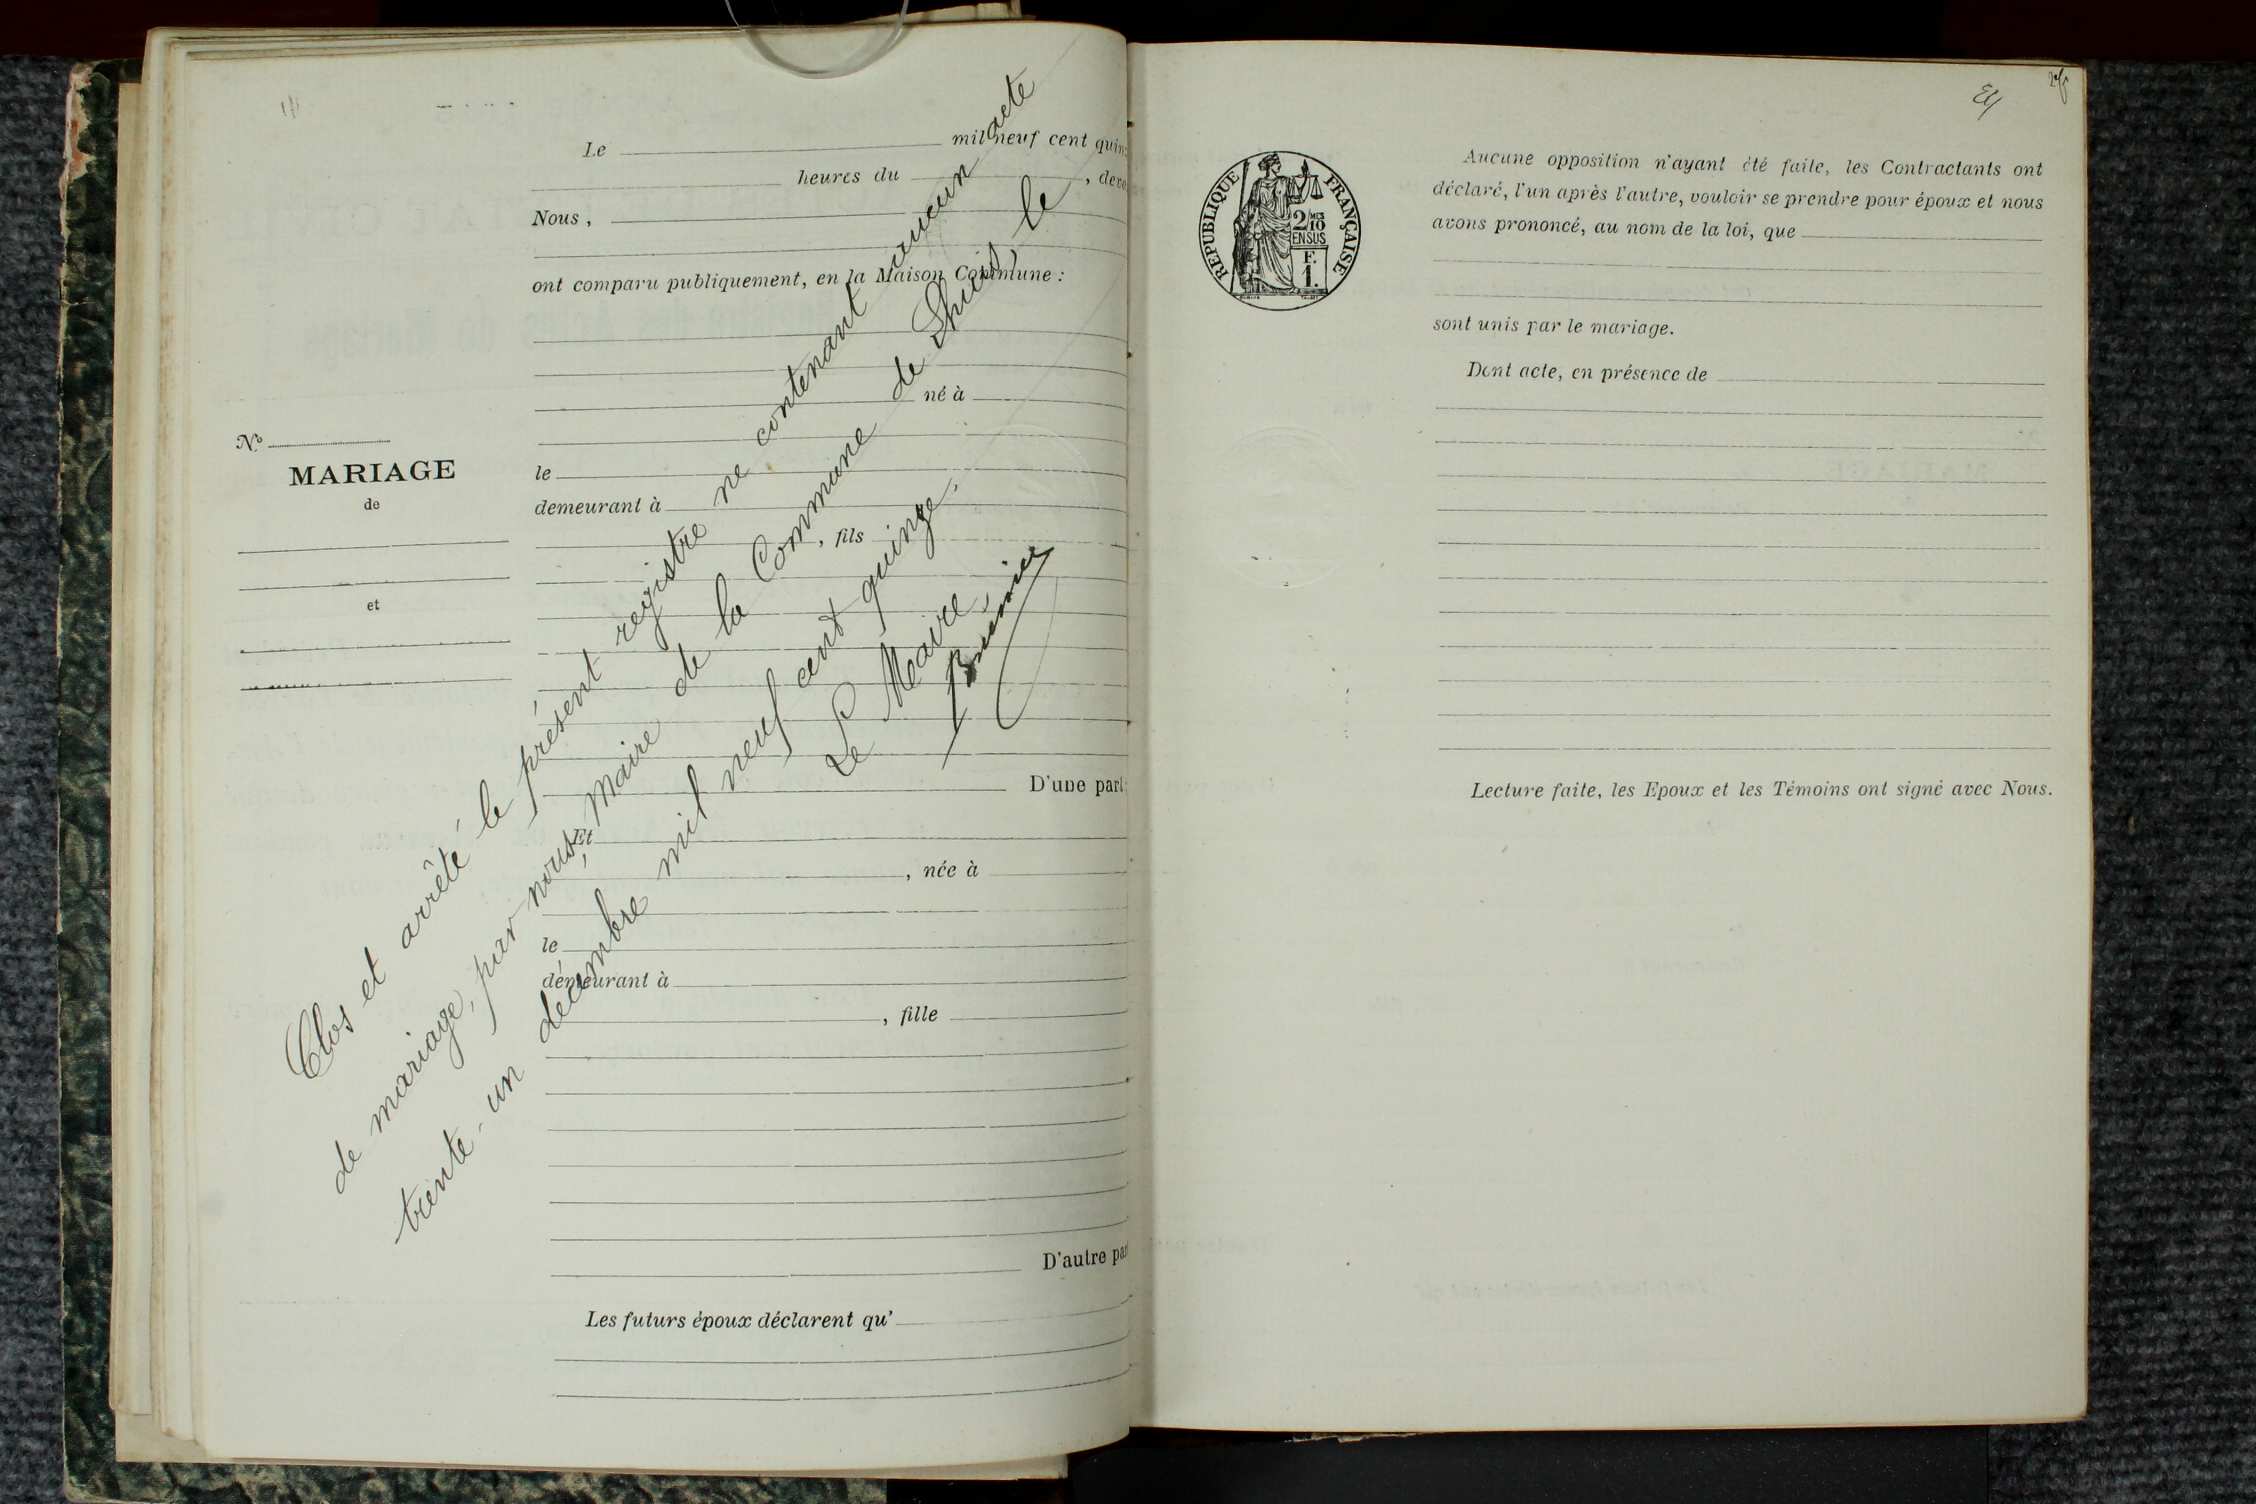 Le mil neuf cent quin
heures du , deva
Nous ,
ont comparu publiquement, en la Maison Commune :
né à
No
MARIAGE
de
et
le
demeurant à
, fils
D'une part
Et
, née à
le
demeurant à
, fille
D'autre par
Les futurs époux déclarent qu'
Clos et arrêté le présent registre ne contenant aucun acte
de mariage, par nous, Maire de la Commune de Lhuis, le
trente-un décembre mil neuf cent quinze.
Le Maire,
RÉPUBLIQUE FRANÇAISE
2 MES
10
EN SUS
F.
1.
Aucune opposition n'ayant été faite, les Contractants ont
déclaré, l'un après l'autre, vouloir se prendre pour époux et nous
avons prononcé, au nom de la loi, que
sont unis par le mariage.
Dont acte, en présence de
Lecture faite, les Epoux et les Témoins ont signé avec Nous.